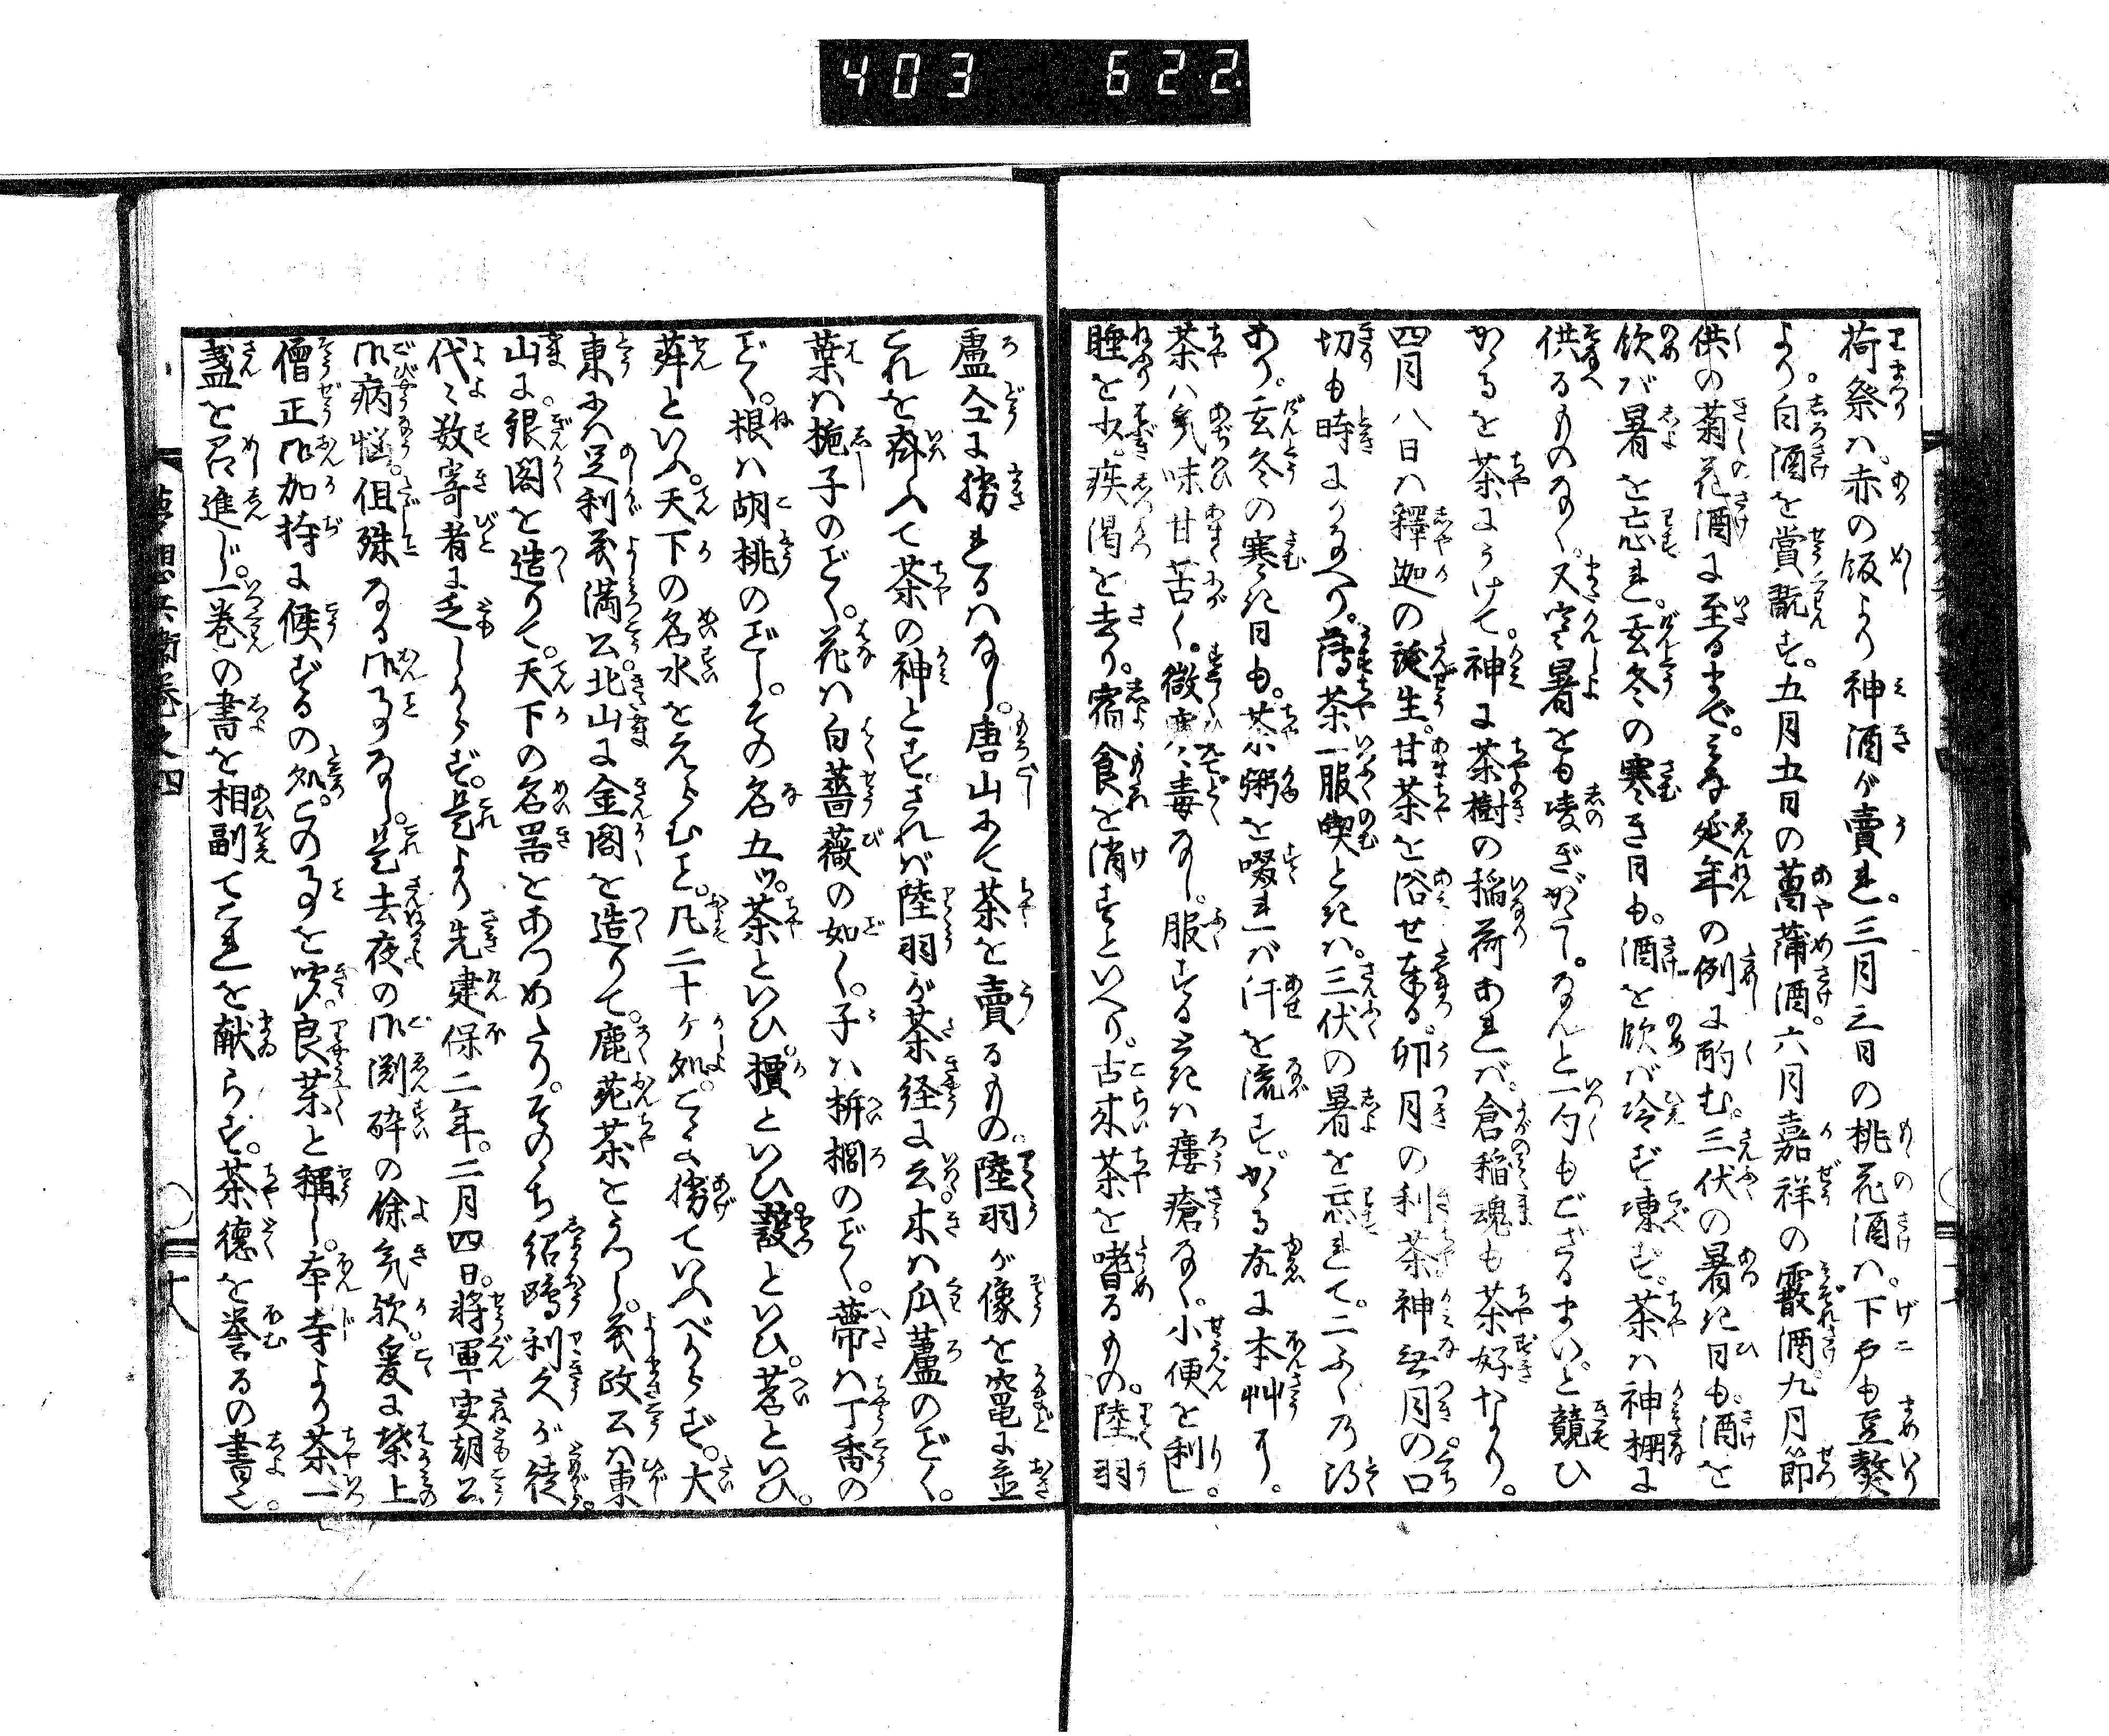 403 622
荷祭ハ。赤の飯より神酒が賣れ。三月三日の桃花酒ハ。下戸も豆熬
より。白酒を賞翫す。五月五日の菖蒲酒。六月嘉祥の霰酒。九月節
供の菊花酒に至るまで。みな延年の例に酌む。三伏の暑き日も。酒を
飲バ暑を忘れ。玄冬の寒き月も。酒を飲バ冷ず凍ず。茶ハ神棚に
供るものなく。又寒暑をも凌ぎがたし。なんと一勺もござるまい。と競ひ
かゝるを茶にうけて。神に茶樹の稲荷あれバ。倉稲魂も茶好なり。
四月八日ハ釋迦の誕生。甘茶を浴せ奉る。卯月の利茶神無月の口
切も時にかなへり。薄茶一服喫ときハ。三伏の暑を忘れて。二ふく乃
あり。玄冬の寒き日も。茶粥を啜れバ汗を流す。かゝる故に本艸に。
茶ハ氣味甘苦く。微寒ハ毒なし。服するときハ瘻瘡なく。小便を利し
睡を少。疾渇を去り。宿食を消すといへり。古来茶を嗜るもの。陸羽
盧仝に勝れるハなし。唐山にて茶を賣るもの。陸羽が像を竈に並
これを齋て茶の神とす。されバ陸羽が茶経に云。木ハ瓜蘆のごとく。
葉ハ梔子のごとく。花ハ白薔薇の如く。子ハ栟櫚のごとく。蔕ハ丁香の
ごとく。根ハ胡桃のごとし。その名五ツ。茶といひ。檟といひ。蔎といひ。茗といひ。
荈といふ。天下の名水をえらむに。凡二十ヶ処。こゝに擧ていふべからず。大
東にハ足利義満公北山に金閣を造りて。鹿苑茶をうつし。義政公ハ東
山に。銀閣を造りて。天下の名器をあつめたり。そのゝち紹鴎利久が徒。
代々数寄者に乏しからず。是より先建保二年。二月四日。将軍実朝公
御病悩。但殊なる御事なし。是去夜の御渕酔の余気歟。爰に葉上
僧正御加持に候ずるの処。この事を聞。良薬と稱し。本寺より茶一
盞を召進じ。一巻の書を相副てこれを献らす。茶徳を誉るの書也。
夢想兵衛巻之四
十八